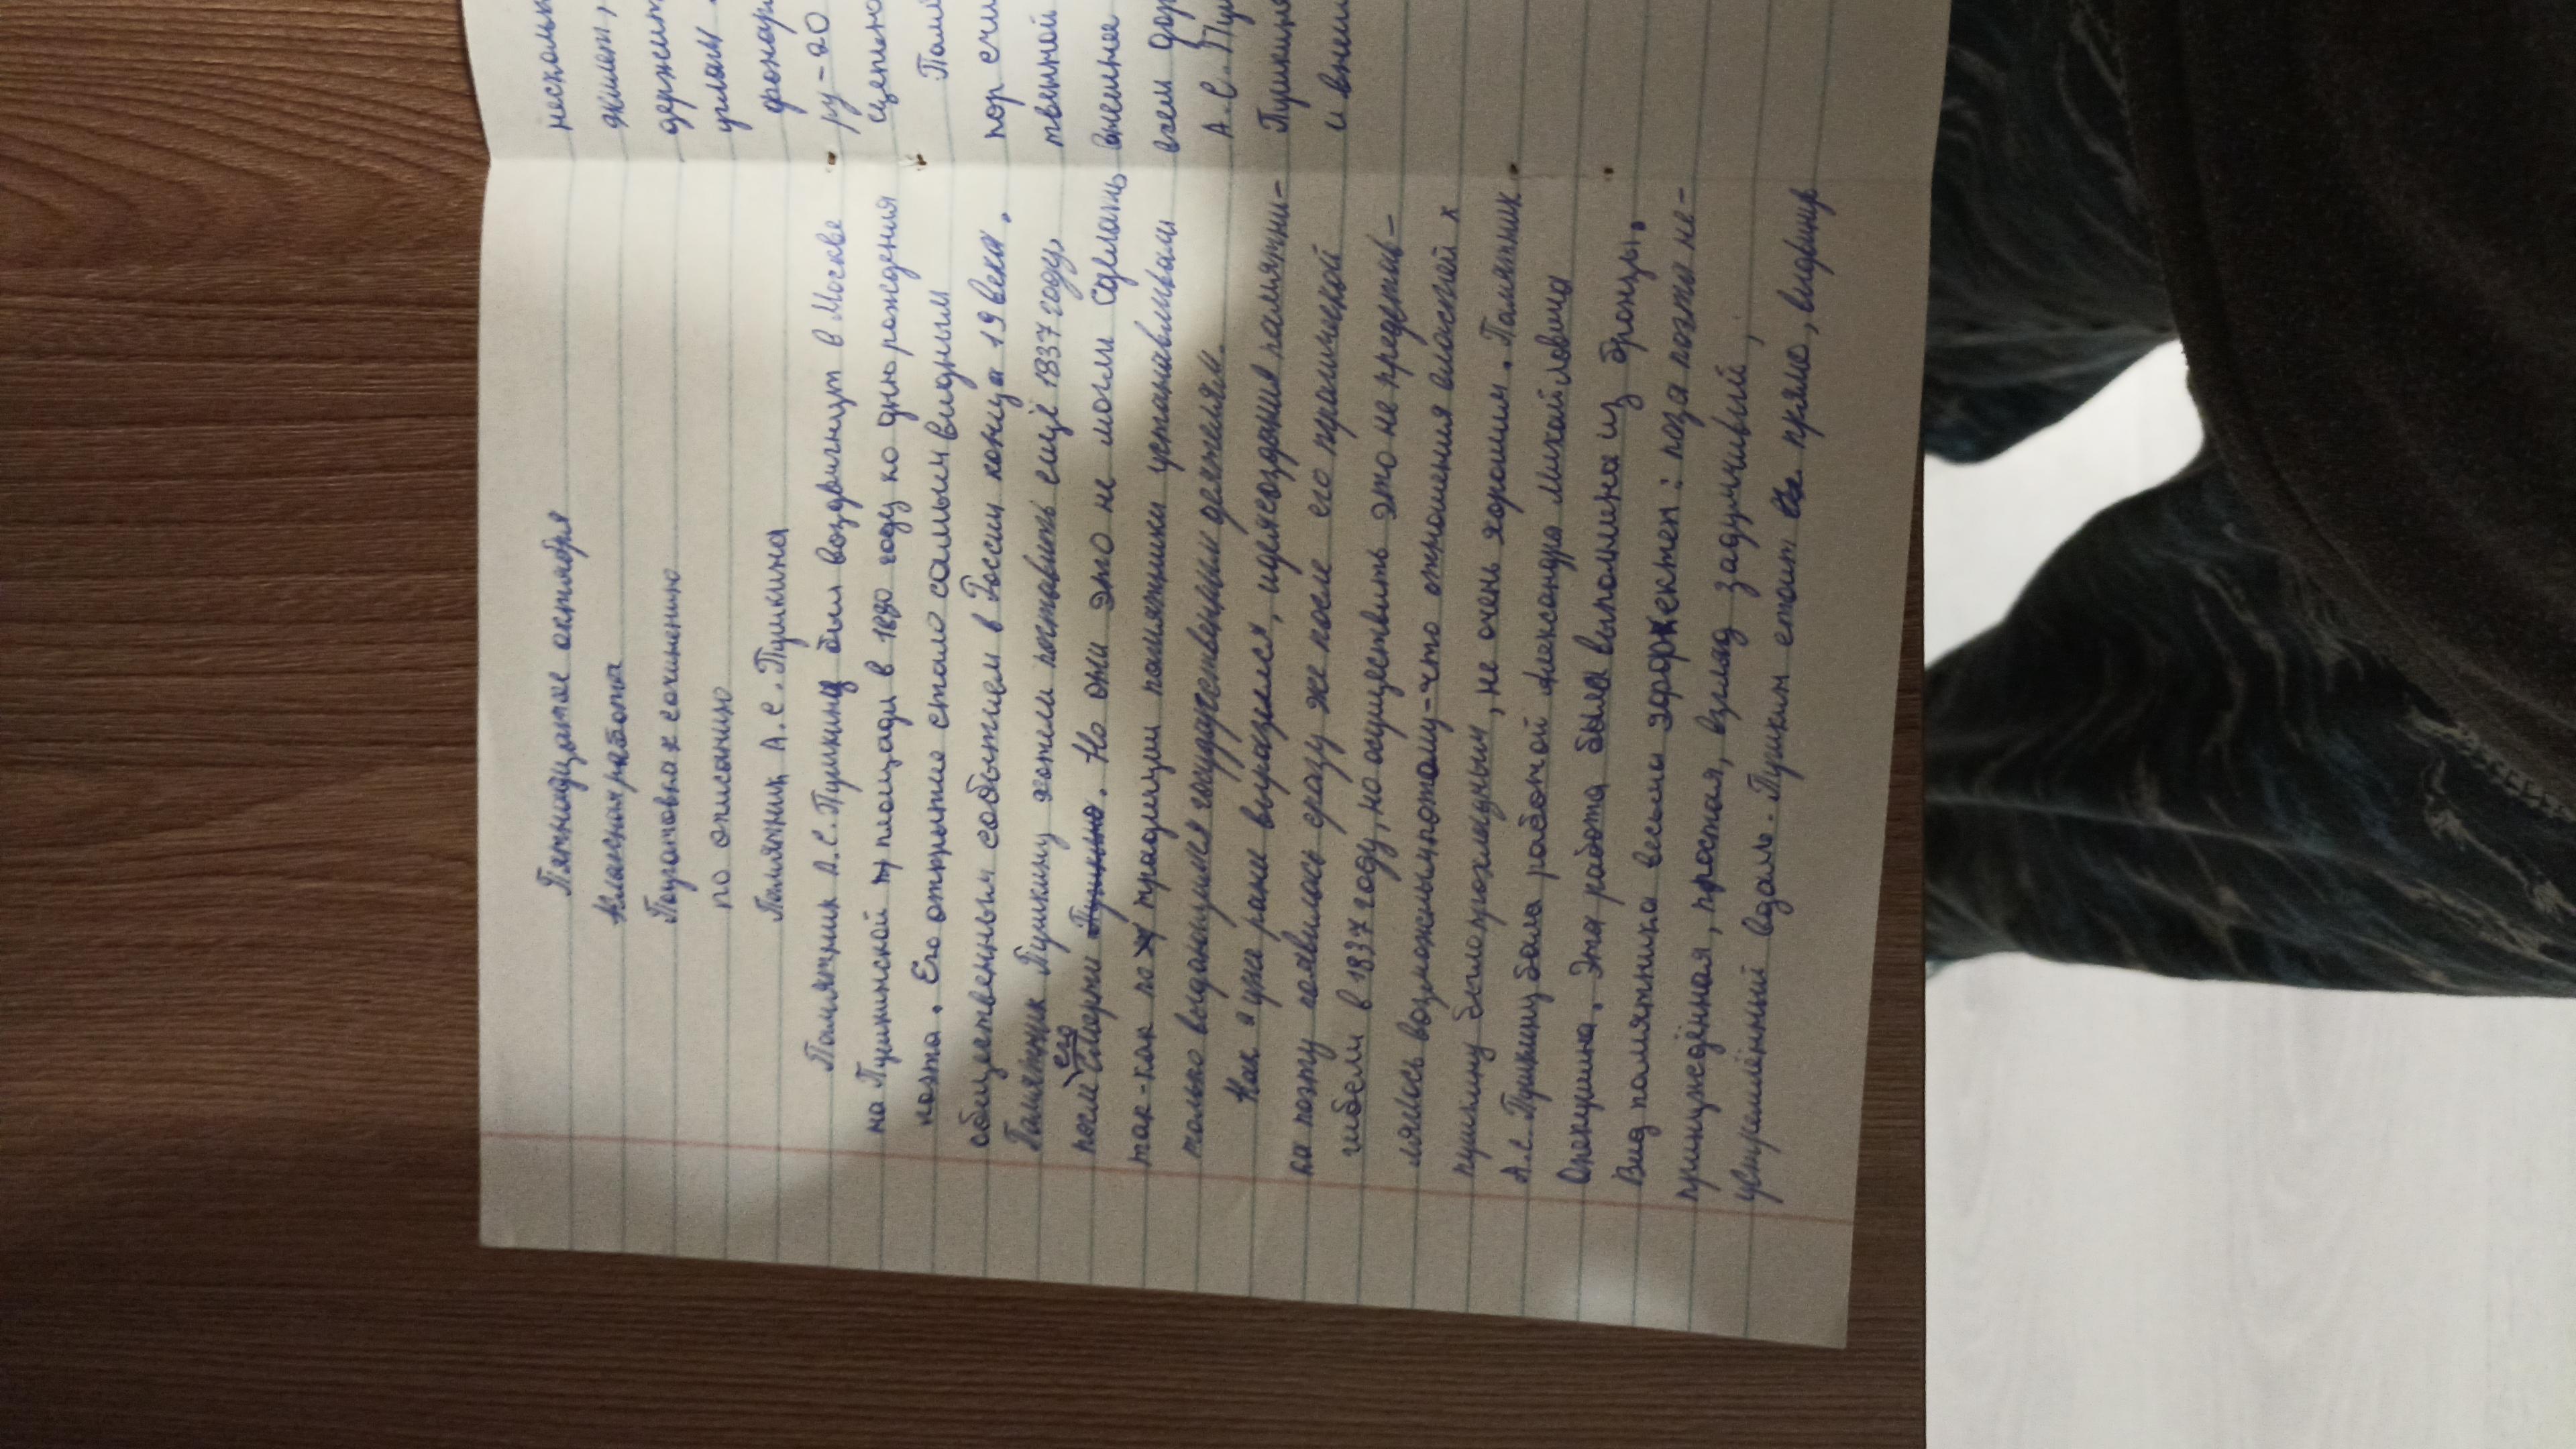 Пятнадцатое октября
Классная работа
Подготовка к сочинению
по описанию
Памятник А.С.Пушкина
Памятник А.С.Пушкину был воздвигнут в Москве
на Пушкинской площади в 1880 году ко дню рождения
поэта. Его открытие стало самым видным
общественным событием в России конца 19 века.
Памятник Пушкину хотели поставить ещё 1837 году,
после его смерти Пушкина. Но они это не могли сделать,
так-как по традиции памятники устанавливали
только выдающимся государственным деятелям.
Как я уже ране выразился, идея создания памятни-
ка поэту появилась сразу же после его трагической
гибели в 1837 году, но осуществить это не представ-
лялось возможным потому-что отношения властей к
пушкину было прохладным, не очень хорошим. Памятник
А.С.Пушкину была работой Александра Михайловича
Опекушина. Эта работа была выполнена из бронзы.
Вид памятника весьма эффектен: поза поэта не-
принуждённая, простая, взгляд задумчивый,
устремлённый вдаль. Пушкин стоит прямо, выдвинув
нескольк
держит
углам
фонари
ру-20
сцепено
Памя
пор счи
твенной
внешнее
всем дор
А.С.Пу
Пушкин
и вним